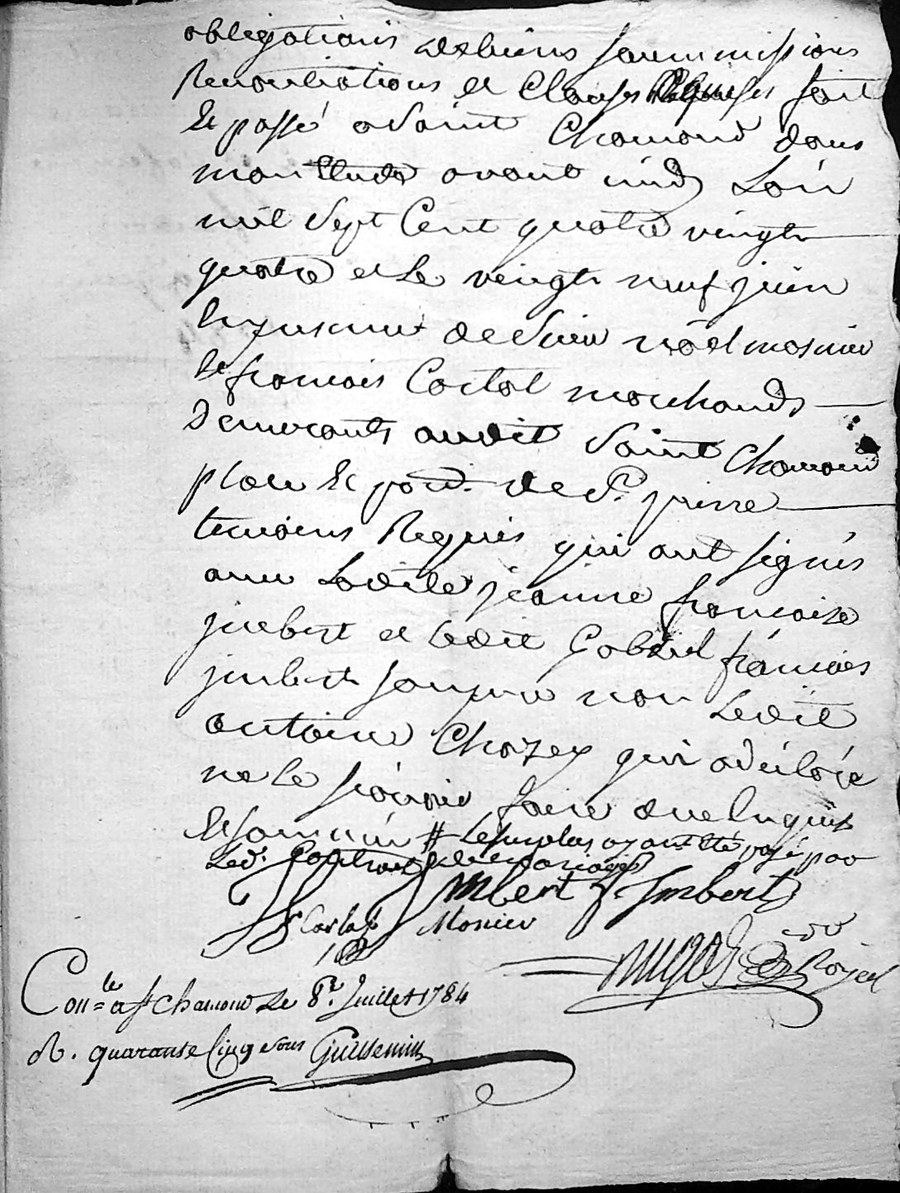 obligations de biens soummissions
Renontiations et Clauses Requises fait
et passé a Saint Chamond dans
mon Etude avant midy Lan
mil Sept Cent quatre vingt
quatre et Le vingt neuf juin
En presence de Sieur noel mosnier
et francois Carlat marchands
Demeurants audit Saint Chamond
place et par. de St. pierre
temoins Requis qui ont signés
avec Ladite jeanne francoise
jmbert et ledit Gabriel francois
jmbert son pere non Ledit
antoine Chazey qui a déclaré
ne le scavoir faire de ce Enquis
Et sommé # Le surplus ayant été
Led.
Imbert f. Imbert
Carlat Mosnier
no.re Royal
Con.le a St Chamond Le 8.e Juillet 1784
R. quarante Cinq sous Guillemin